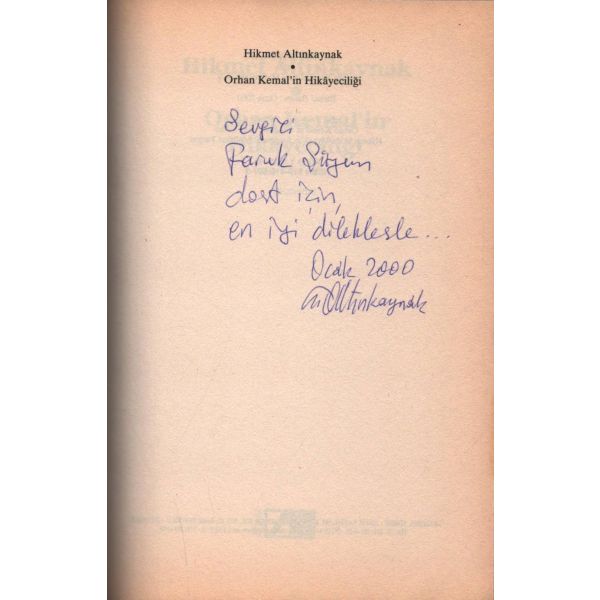 Hikmet Altınkaynak
•
Orhan Kemal'in Hikâyeciliği
Sevgili
Faruk Şüyün
dost için,
en iyi dileklerle...
Ocak 2000
H. Altınkaynak